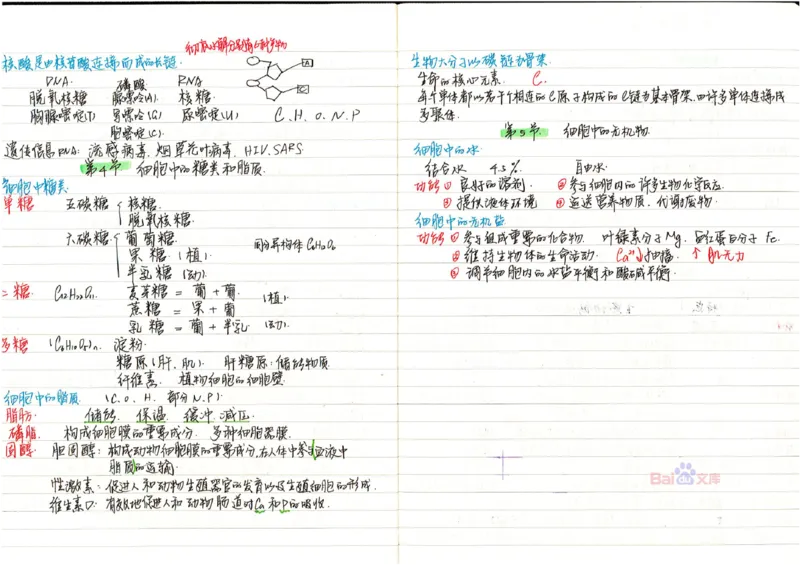 核酸是由核苷酸连接而成的长链.
DNA. 磷酸 RNA
脱氧核糖 腺嘌呤(A). 核糖
胸腺嘧啶(T) 鸟嘌呤(G) 尿嘧啶(U) C.H.O.N.P
胞嘧啶(C).
A
C
遗传信息RNA: 流感病毒. 烟草花叶病毒. HIV.SARS
第4节 细胞中的糖类和脂质.
细胞中糖类
单糖 五碳糖 核糖
脱氧核糖
六碳糖 葡萄糖 同分异构体C6H12O6
果糖 (植)
半乳糖 (动).
二糖. C12H22O11. 麦芽糖 = 葡 + 葡
蔗糖 = 果 + 葡 (植).
乳糖 = 葡 + 半乳 (动)
多糖 (C6H10O5)n. 淀粉
糖原(肝、肌). 肝糖原:储能物质
纤维素. 植物细胞的细胞壁
细胞中的脂质 (C.O.H. 部分N.P).
脂肪. 储能 保温 缓冲 减压.
磷脂. 构成细胞膜的重要成分. 多种细胞器膜.
固醇. 胆固醇: 构成动物细胞膜的重要成分,在人体中参与血液中
脂质的运输
性激素: 促进人和动物生殖器官的发育以及生殖细胞的形成.
维生素D: 有效地促进人和动物肠道对Ca和P的吸收.
生物大分子以碳链为骨架.
生命的核心元素. C.
每个单体都以若干个相连的C原子构成的C链为基本骨架.由许多单体连接成
多聚体.
第5节 细胞中的无机物.
细胞中的水
结合水 4.5%. 自由水.
功能① 良好的溶剂. ②参与细胞内的许多生物化学反应
③提供液体环境 ④运送营养物质、代谢废物.
细胞中的无机盐
功能 ①参与组成重要的化合物. 叶绿素分子Mg、血红蛋白分子Fe.
②维持生物体的生命活动. Ca²⁺↓抽搐. ↑肌无力
③调节细胞内的水盐平衡和酸碱平衡.
Bai du 文库